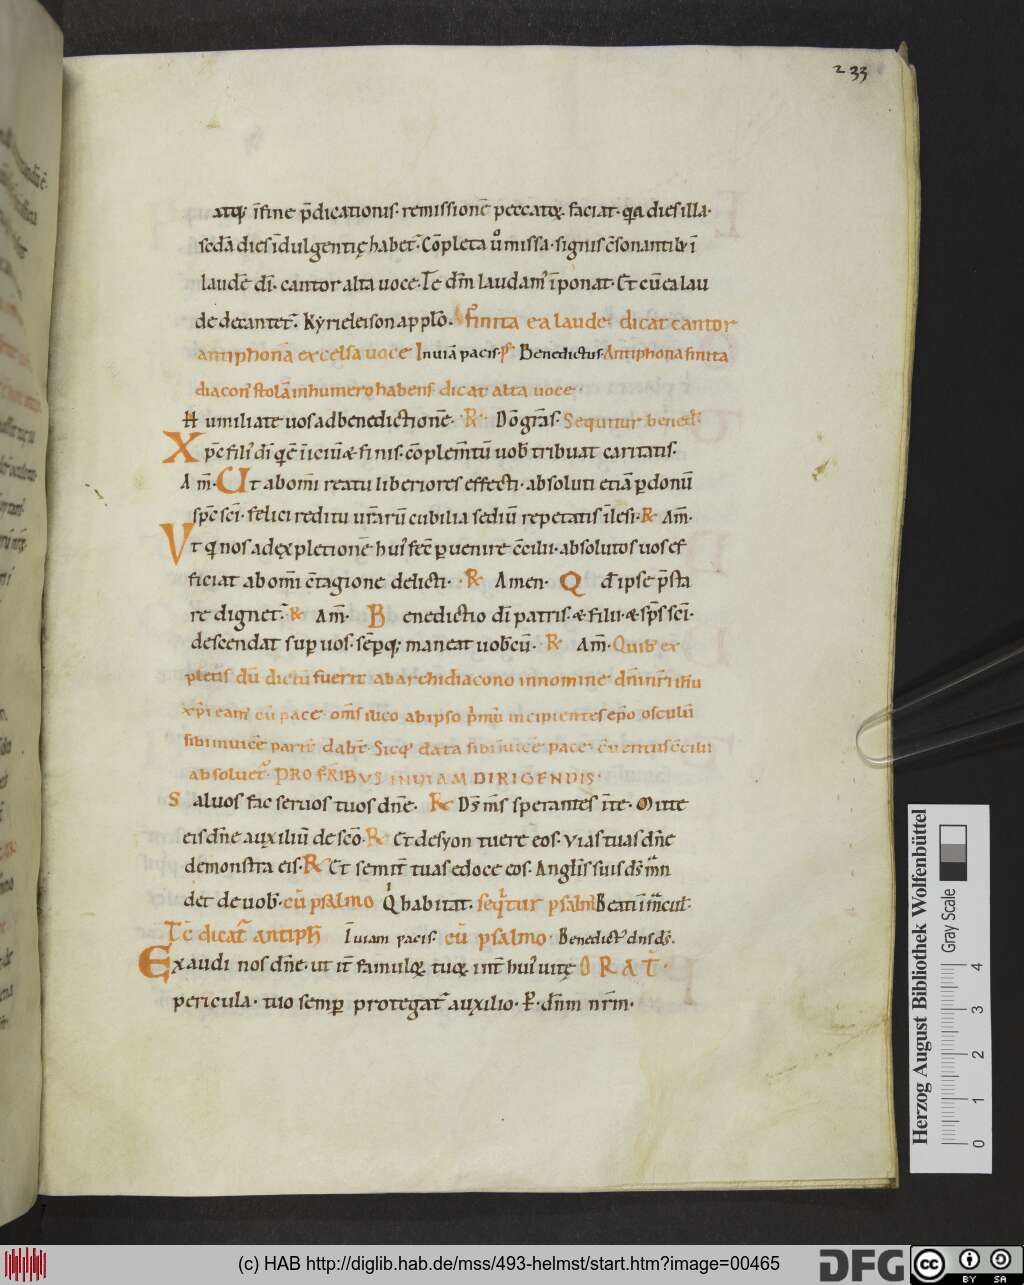 233
atq; ĩfine p̄dicationis· remissionē peccatoꝝ faciat· q̄a dies illa·
sedā dies ĩdulgentię habet᷑· Cōpleta ů missa· signis c̄sonantib; ĩ
laudē dī· cantor alta uoce· Te dm̄ laudam᷒ ĩponat· Et cū ea lau
de decantet᷑· Kyrieleison a pplo᷒· finita ea laude· dicat cantor
antiphonā excelsa uoce In uiā pacis· ps̄ Benedictus· Antiphona finita
diacon᷒ stolā in humero habens dicat alta uoce·
Humiliate uos ad benedictionē· R̄· Dō gr̄as· Sequitur bened̄·
Xp̄e fili᷒ dī q̄ ē īiciū & finis· cōplem̄tū uob̄ tribuat caritatis·
Am̄· Ut ab om̄i reatu liberiores effecti· absoluti etiā p̱donū
sp̄c sc̄i· felici reditu ur̄arū cubilia sediū repetatis ĩlesi· R̄ Am̄·
Vt q nos ad expletionē hui᷒ fec̄ p̱uenire c̄cilii· absolutos uos ef
ficiat ab om̄i c̄tagione delicti· R̄ Amen· Q d̄ ipse p̄sta
re dignet᷑· R̄ Am̄· Benedictio dī patris· & filii· & sp̄s sc̄i·
descendat sup̱ uos· sēp̱q; maneat uobcū· R̄ Am̄· Quib᷒ ex
pletis dū dictū fuerit ab archidiacono in nomine dn̄i nr̄i ih̄u
xp̄i eam᷒ cū pace· om̄s ilico ab ipso p̄mū incipientes ep̄o osculū
sibi inuicē parit̄ dab̄t· Sicq; data sibi ĩuicē pace· c̄uentus c̄cilii
absoluet᷑· PRO FR̄IBVS IN VIAM DIRIGENDIS·
Saluos fac seruos tuos dn̄e· R̄ Ds̄ m̄s sperantes ĩ te· Mitte
eis dn̄e auxiliū de sc̄o· R̄ Et de syon tuere eos· Vias tuas dn̄e
demonstra eis· R̄ Et semit̄ tuas edoce eos· Anglis suis ds̄ mn̄
det de uob̄· cū psalmo Q habitat· seq̄tur psalm̄ Beati ĩmacul̄·
Tc̄ dicat᷑ antiph̄ In uiam pacis· cū psalmo· Benedict᷒ dns ds̄·
Exaudi nos dn̄e· ut it̄ famuloꝝ tuoꝝ int̄ hui᷒ uitę ORAT̄·
pericula· tuo semp̱ protegat᷑ auxilio· P̱· dn̄m nr̄m·
Herzog August Bibliothek Wolfenbüttel
Gray Scale
0 1 2 3 4
(c) HAB http://diglib.hab.de/mss/493-helmst/start.htm?image=00465
DFG
cc
BY SA